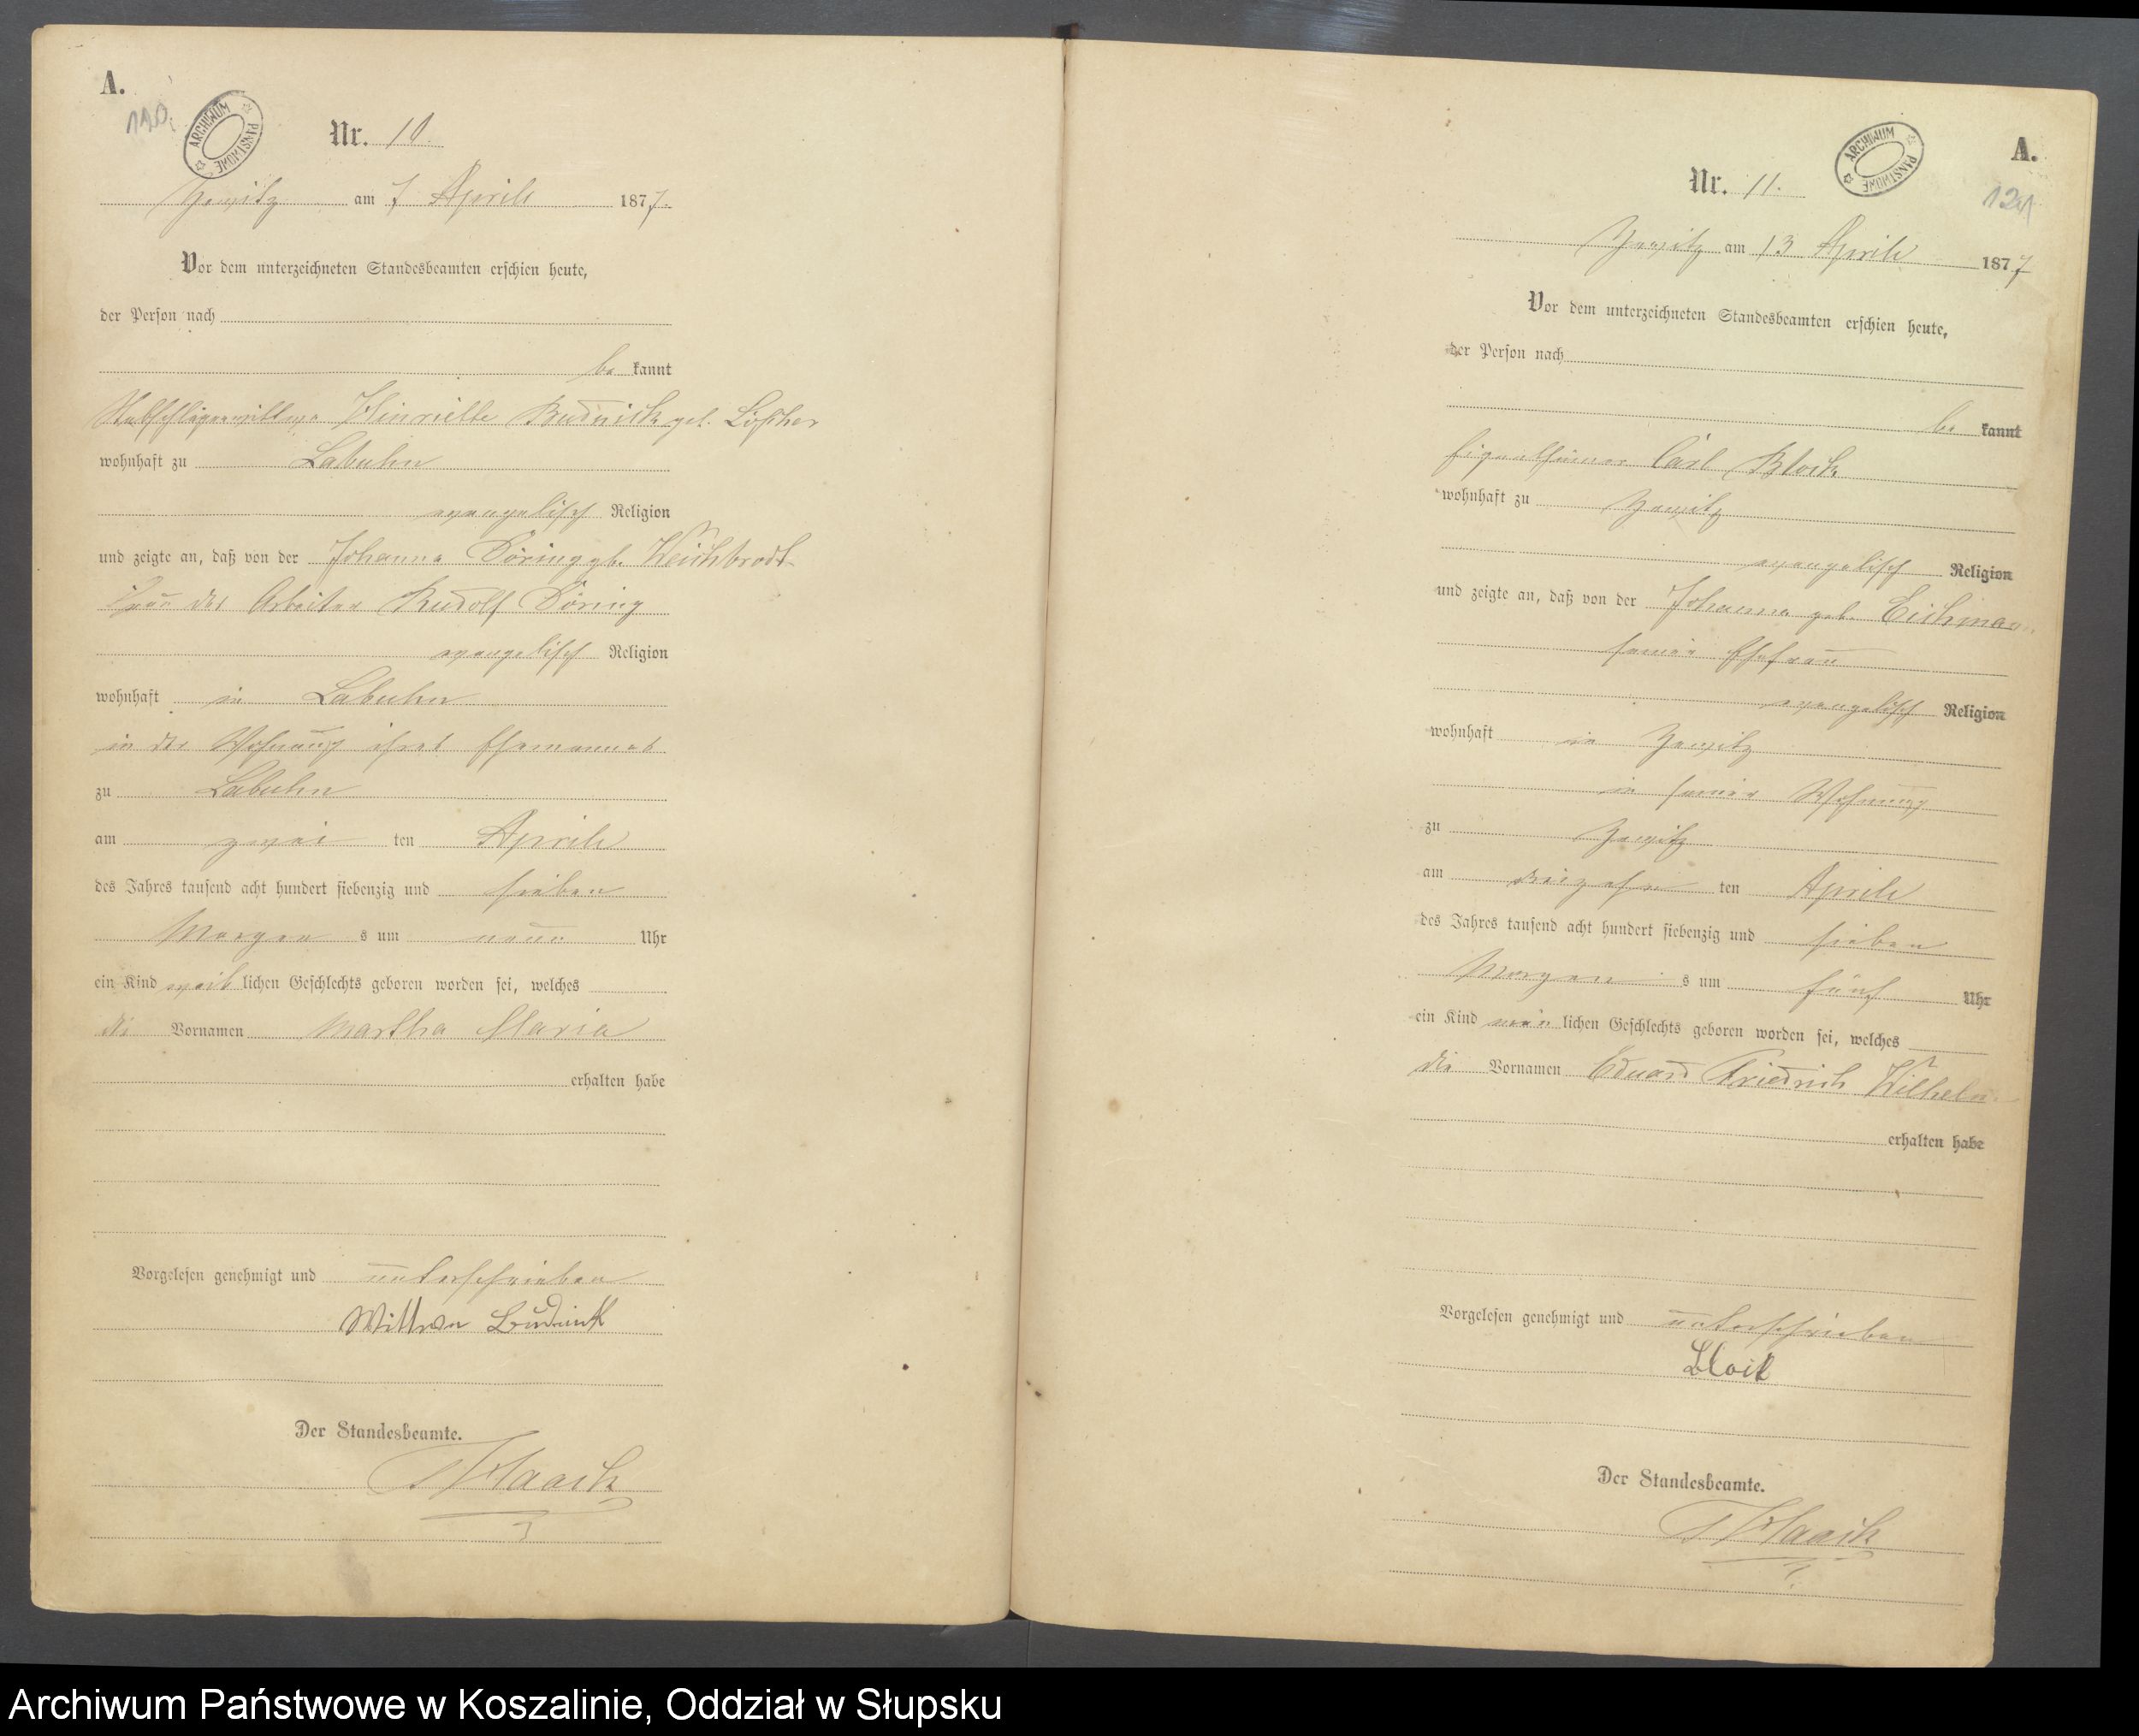 A.
120
ARCHIWUM PAŃSTWOWE
Nr. 10.
Jewitz am 7 Aprill 1877.
Vor dem unterzeichneten Standesbeamten erschien heute,
der Person nach
be kannt
Henriette Budnick geb.
wohnhaft zu Labuhn
evangelisch Religion
und zeigte an, daß von der Johanna Döring geb. Weichbrodt
Frau des Arbeiter Rudolf Döring
evangelisch Religion
wohnhaft in Labuhn
in der Wohnung ihres Ehemannes
zu Labuhn
am zwei ten Aprill
des Jahres tausend acht hundert siebenzig und sieben
Morgen s um neun Uhr
ein Kind weib lichen Geschlechts geboren worden sei, welches
die Vornamen Martha Maria
erhalten habe
Vorgelesen genehmigt und unterschrieben
Wittwe Budnick
Der Standesbeamte.
Haack
A.
121
ARCHIWUM PAŃSTWOWE
Nr. 11.
Jewitz am 13 Aprill 1877
Vor dem unterzeichneten Standesbeamten erschien heute,
der Person nach
be kannt
Eigenthümer Carl Block
wohnhaft zu Jewitz
evangelisch Religion
und zeigte an, daß von der Johanna geb. Eichmann
seiner Ehefrau
evangelisch Religion
wohnhaft in Jewitz
in seiner Wohnung
zu Jewitz
am dreizehn ten Aprill
des Jahres tausend acht hundert siebenzig und sieben
Morgen s um fünf Uhr
ein Kind män lichen Geschlechts geboren worden sei, welches
die Vornamen Eduard Friedrich Wilhelm
erhalten habe
Vorgelesen genehmigt und unterschrieben
Block
Der Standesbeamte.
Haack
Archiwum Państwowe w Koszalinie, Oddział w Słupsku